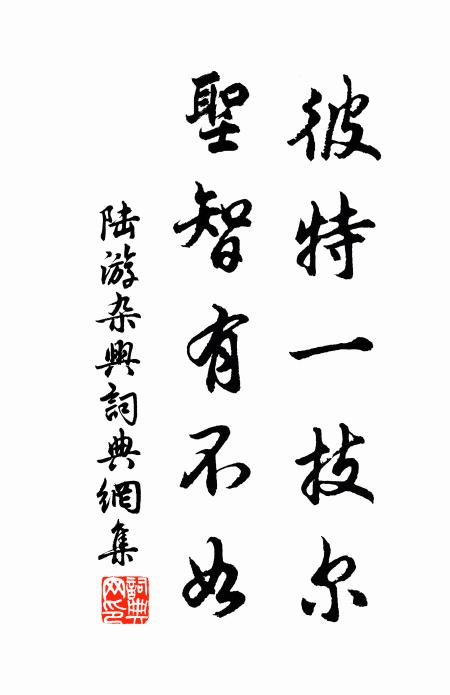 彼特一技尔
聖智有不如
陆游杂興詞典網集
詞典
网印